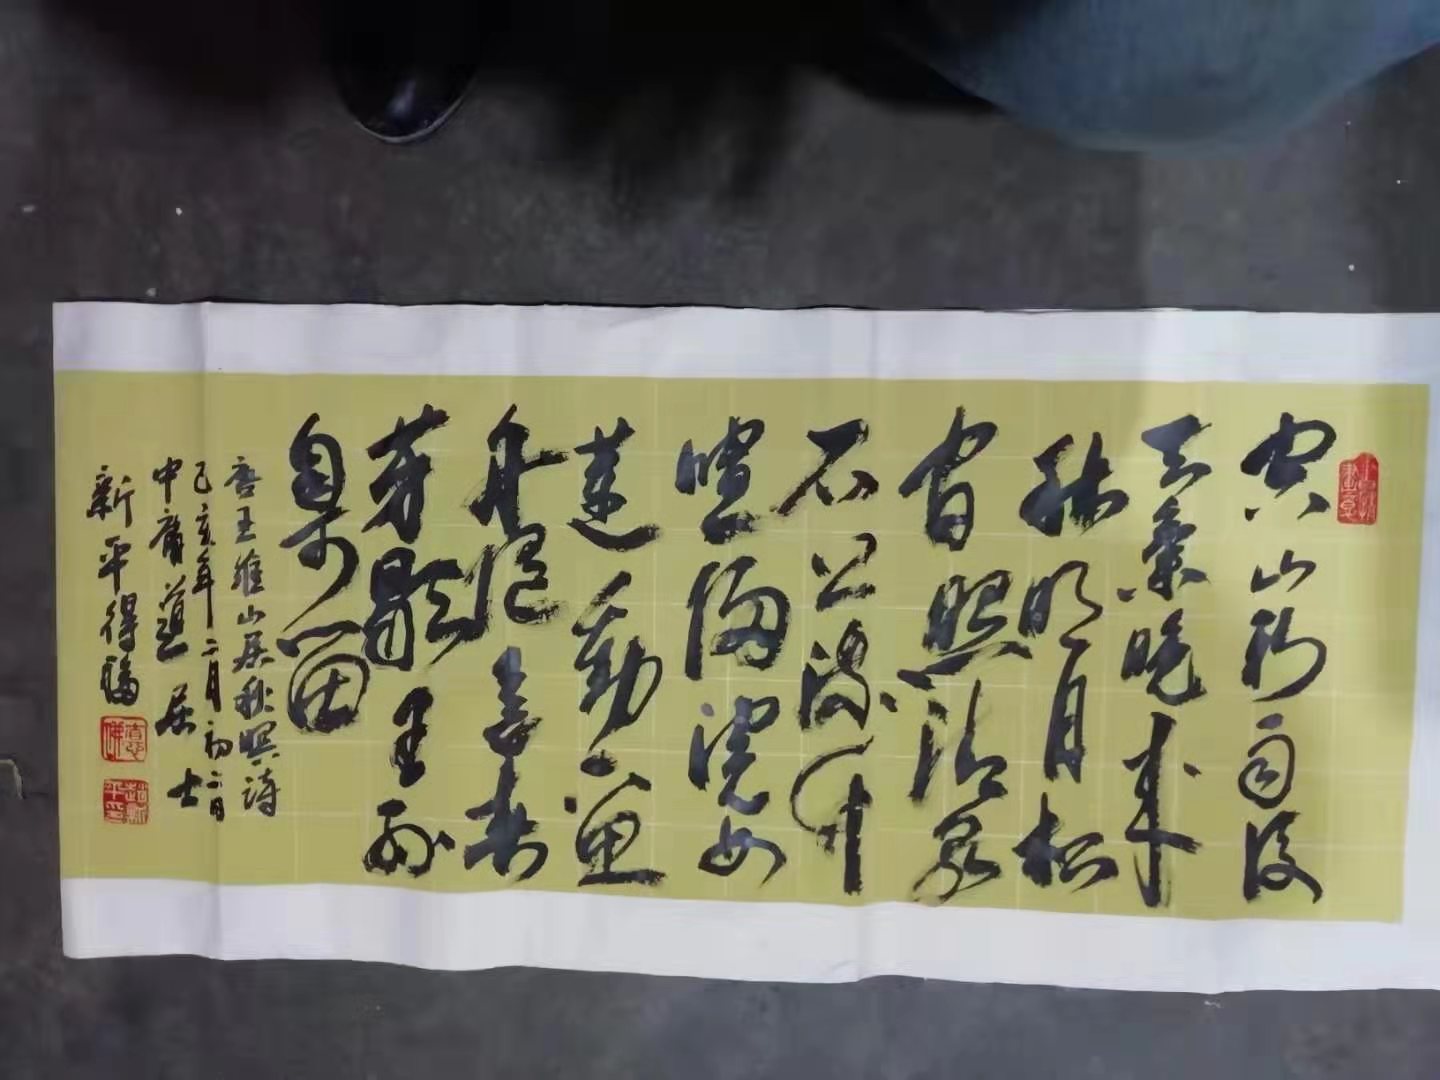 空山新雨後
天氣晚来
秋明月松
間照清泉
石上流竹
喧歸浣女
蓮動下漁
舟隨意春
芳歇王孫
自可留
唐王維山居秋暝詩
己亥年二月初二日
中庸道居士
新平得福